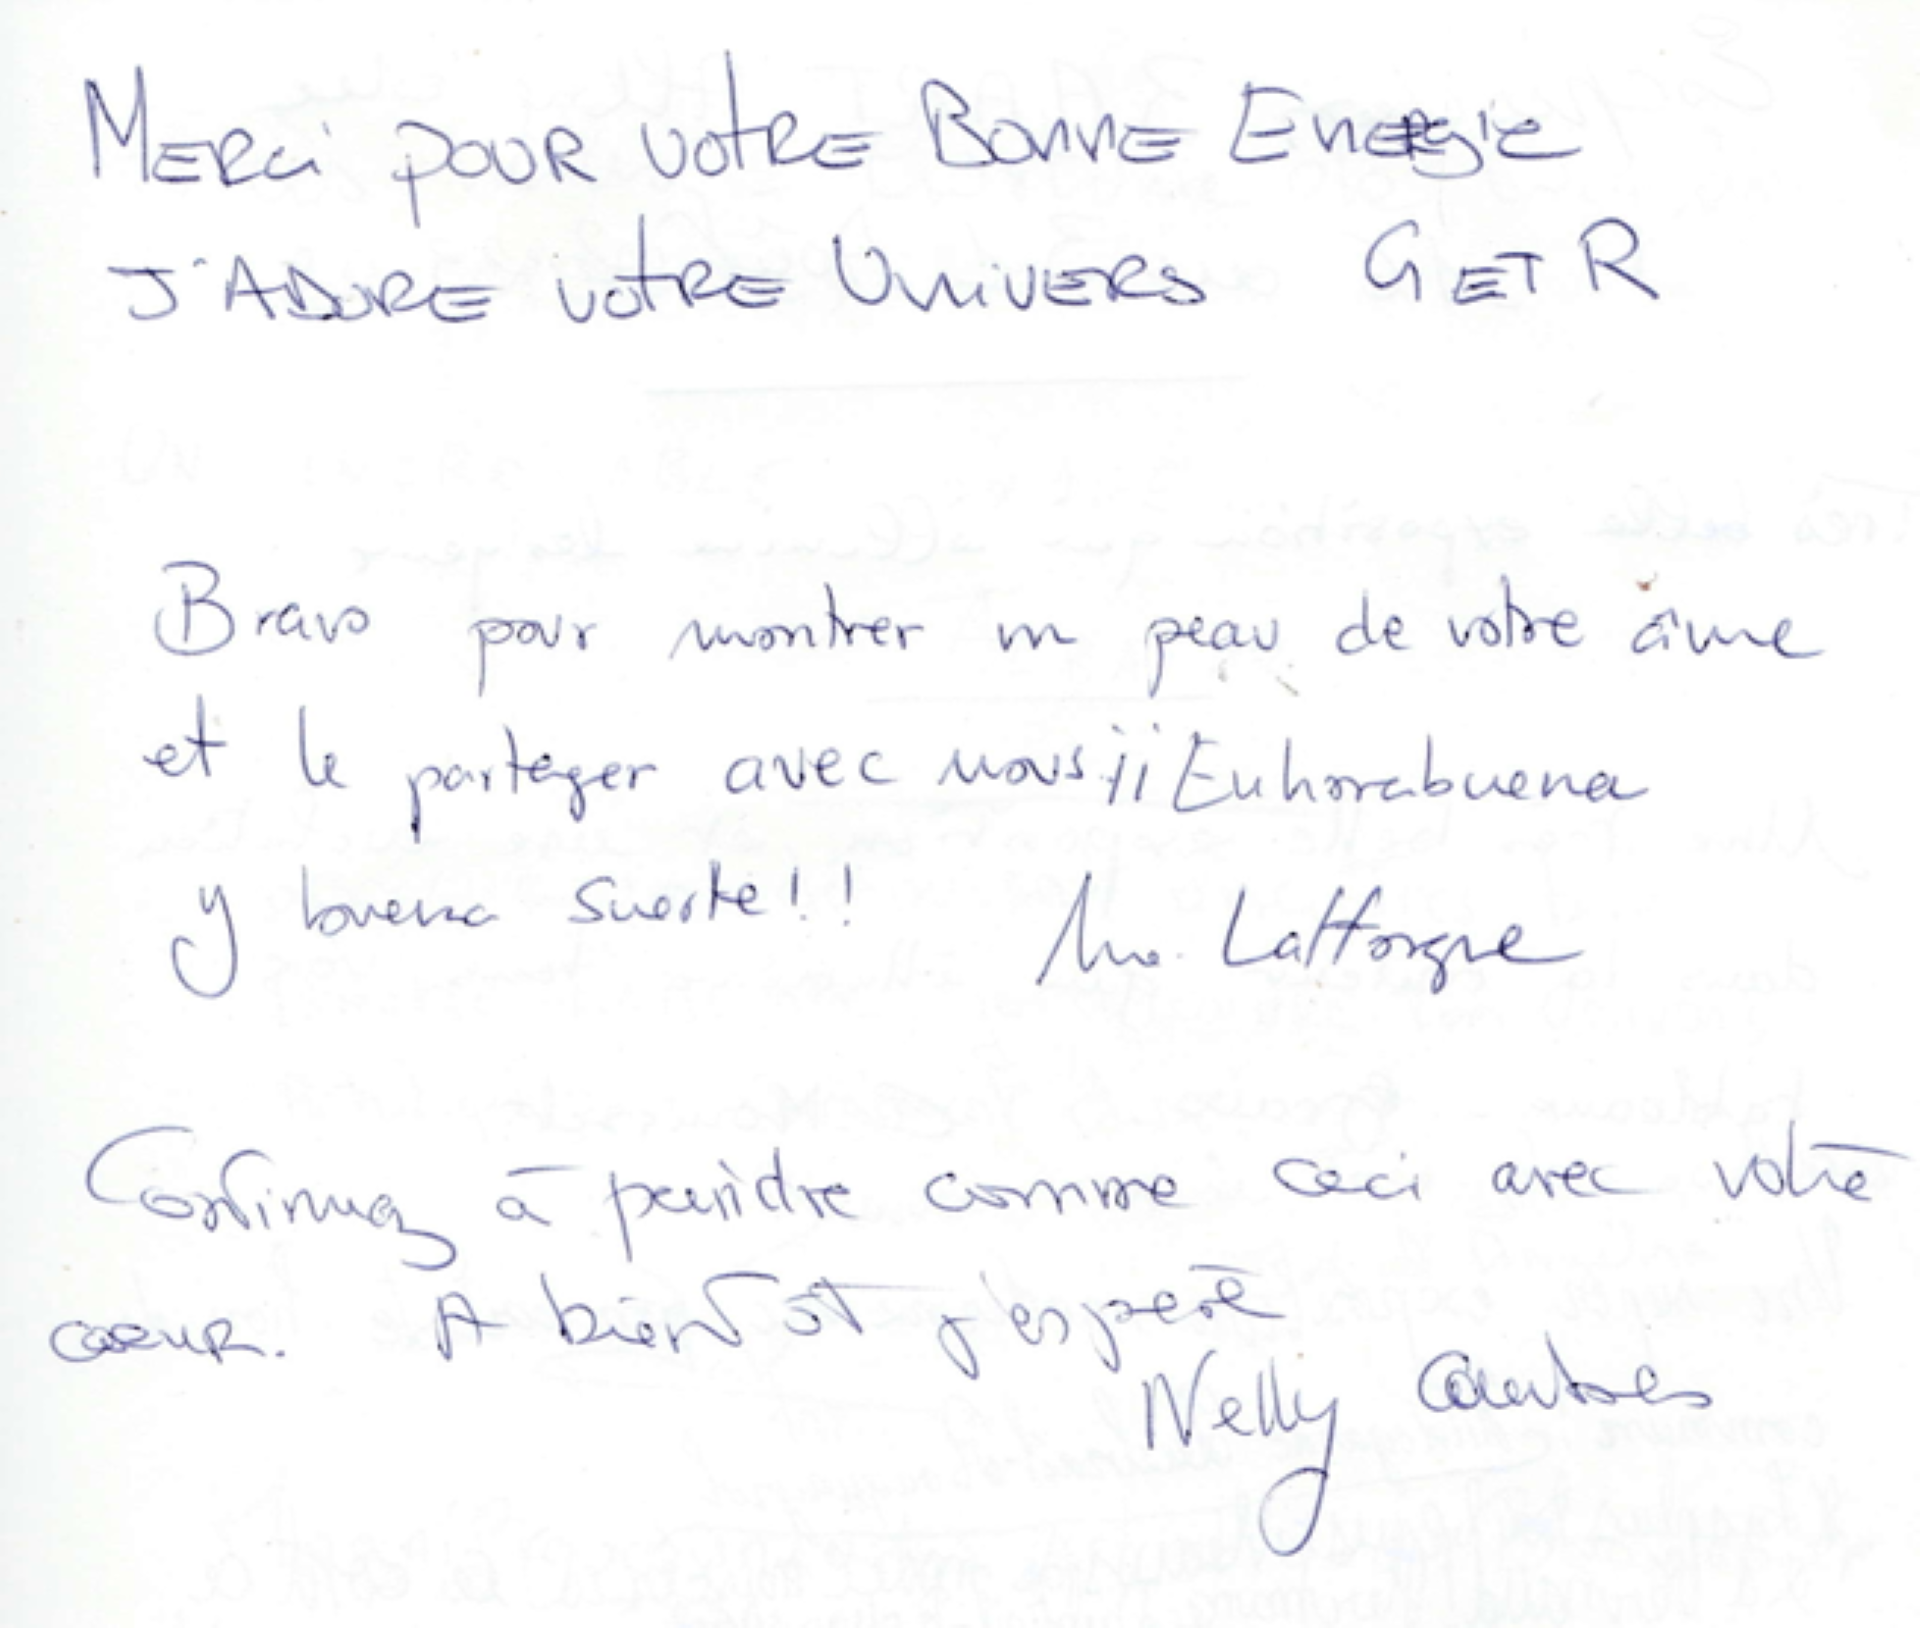 Merci pour votre Bonne Energie
J'Adore votre Univers G et R
Bravo pour montrer un peau de votre âme
et le partager avec nous ¡¡ Enhorabuena
y buena suerte!!
Lafforgue
Continuez à peindre comme ceci avec votre
coeur. A bientôt j'espère
Nelly